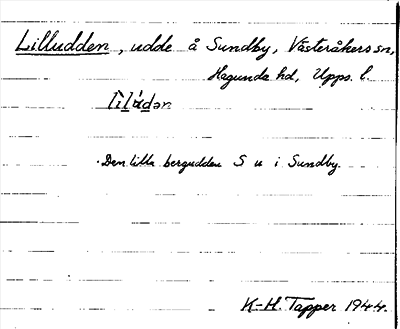 Lilludden, udde å Sundby, Västeråkers sn,
Hagunda hd, Upps. l.
Den lilla bergudden S u i Sundby.
K-H. Tapper 1944.